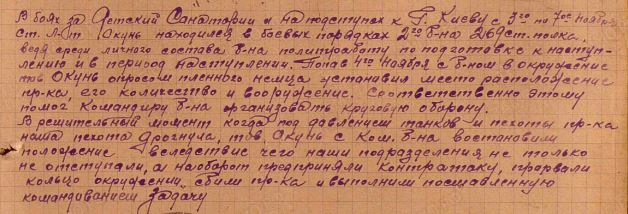 В боях за Детский Санаторий и на подступах к г. Киеву с 3го по 7ое ноября
ст. л-т Окунь находился в боевых порядках 2го б-на 269 ст. полка,
ведя среди личного состава б-на политработу по подготовке к наступ-
лению и в период наступления. Попав 4го ноября с б-ном в окружение
тов. Окунь опросом пленного немца установил место расположение
пр-ка его количество и вооружение. Соответственно этому
помог командиру б-на организовать круговую оборону.
В решительный момент когда под давлением танков и пехоты пр-ка
наша пехота дрогнула, тов. Окунь с ком. б-на востановили
положение вследствие чего наши подразделения не только
не отступали, а наоборот предприняли контратаку, прорвали
кольцо окружении, сбили пр-ка и выполнили поставленную
командиванием задачу